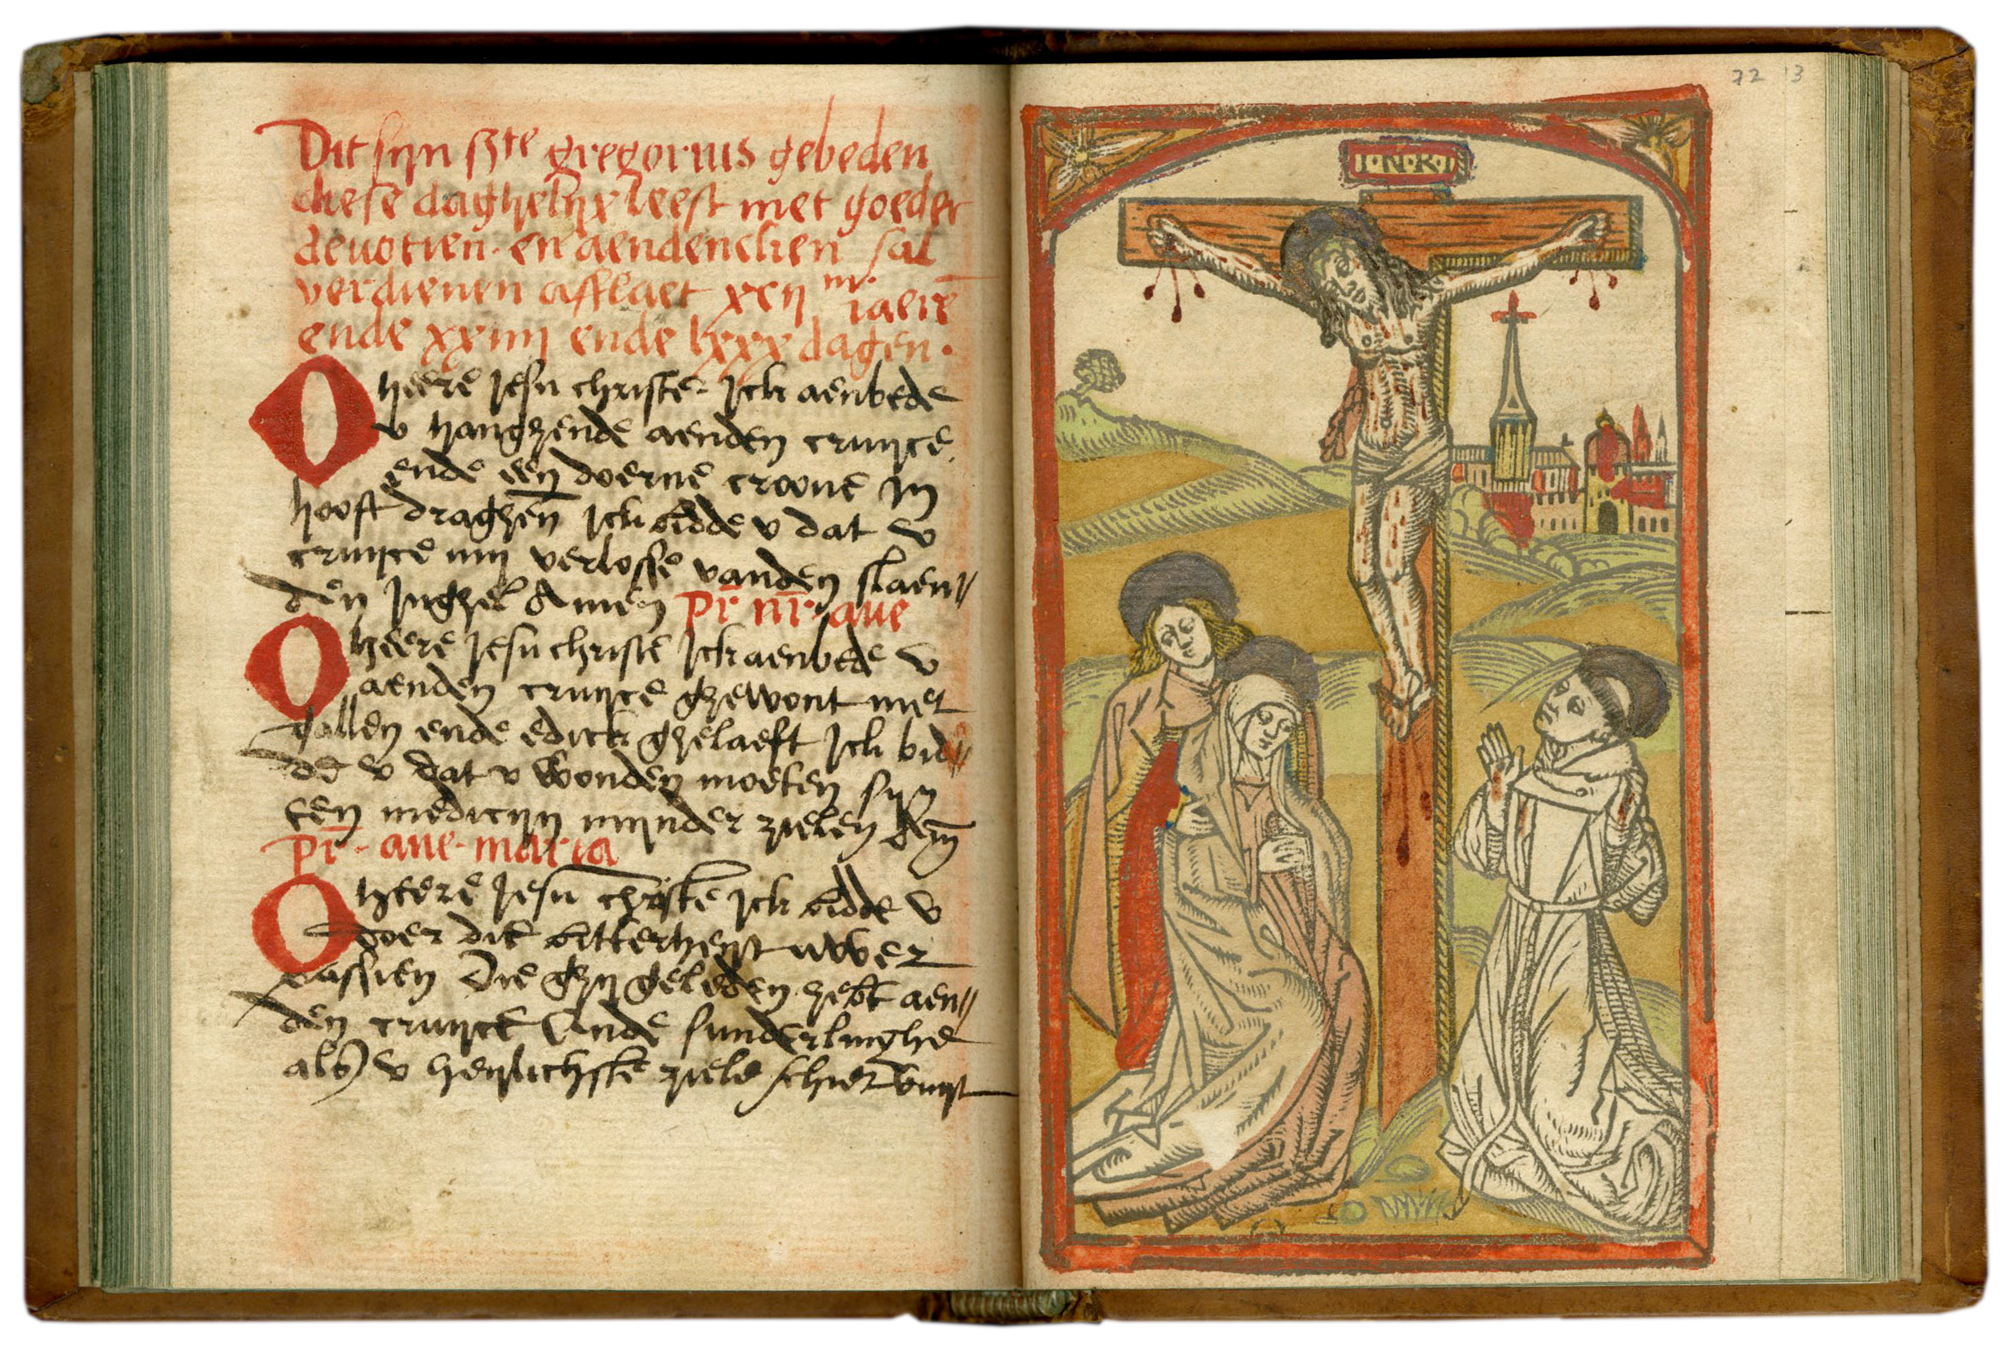 Dit sijn ste gregorius gebeden
diese daghelijx leest met goeder
deuotien · en aendencken sal
verdienen afflaet xcij m iaerē
ende xxiiij ende lxxx dagen ·
O heere Jesu christe · Jck aenbede
v hanghende aenden cruijce
ende een doerne croone in
hooft draghen̄ Jck bidde v dat v
cruijce mij verlosse vanden slaen〃
den Jnghel Amen pr̄ nr̄ · aue
O heere Jesu christe Jck aenbede v
aenden cruijce ghewont met
gallen ende edick ghelaeft Jck bid〃
de v dat v wonden moeten sijn
een medicijn mijnder zielen Amē
pr̄ · aue · maria
O heere Jesu christe Jck bidde v
doer die bitterheijt uwer
passien Die ghij geleden hebt aen〃
den cruijce Ende sunderlinghe
als v heijlichste ziele schier vuijt
I·N·R·I
72 13